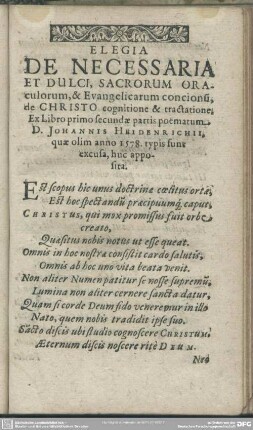 ELEGIA
DE NECESSARIA
ET DULCI, SACRORUM ORA-
culorum, & Evangelicarum concionū,
de CHRISTO cognitione & tractatione,
Ex Libro primo secundæ partis poematum
D. JOHANNIS HEIDENRICHII,
quæ olim anno 1578. typis sunt
excusa, huc appo-
sita.
Est scopus hic unus doctrinæ cœlitus ortæ,
Est hoc spectandū præcipuumq́; caput,
CHRISTUS, qui mox promissus fuit orbe
creato,
Quæsitus nobis notus ut esse queat.
Omnis in hoc nostræ consistit cardo salutis,
Omnis ab hoc uno vita beata venit.
Non aliter Numen patitur se nosse supremū,
Lumina non aliter cernere sancta datur,
Quam si corde Deum fido veneremur in illo
Nato, quem nobis tradidit ipse suo.
Sācto discis ubi studio cognoscere CHRISTUM,
Æternum discis noscere ritè DEUM.
Neo